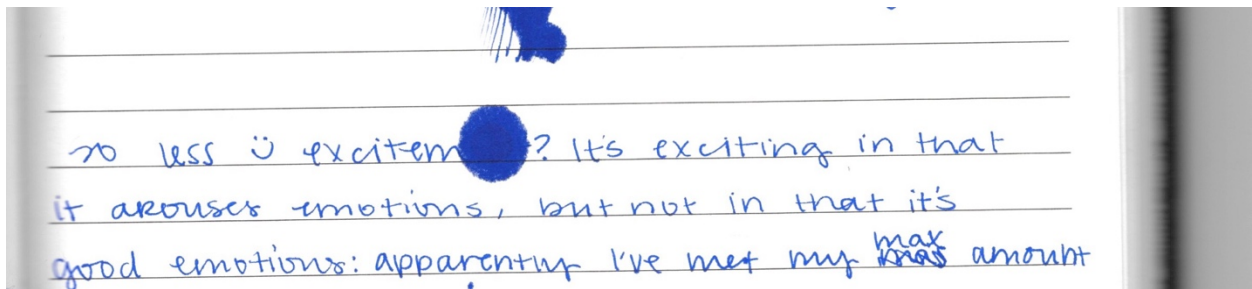 so less ü excitem ? It's exciting in that
it arouses emotions, but not in that it's
good emotions: apparently I've met my max amount